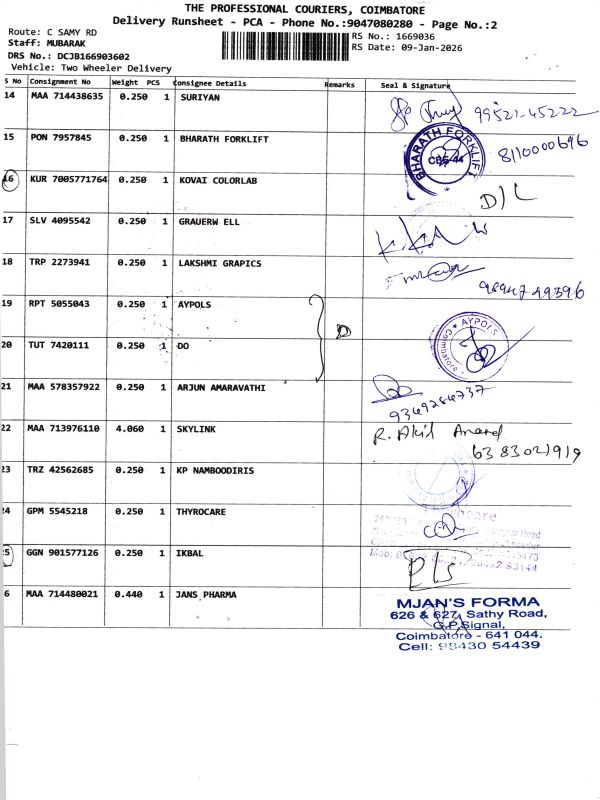 THE PROFESSIONAL COURIERS, COIMBATORE
Delivery Runsheet - PCA - Phone No.:9047080280 - Page No.:2
Route: C SAMY RD
RS No.: 1669036
Staff: MUBARAK
RS Date: 09-Jan-2026
DRS No.: DCJB166903602
Vehicle: Two Wheeler Delivery
S No Consignment No Weight PCS Consignee Details Remarks Seal & Signature
14 MAA 714438635 0.250 1 SURIYAN 99521-45222
15 PON 7957845 0.250 1 BHARATH FORKLIFT BHARATH FORKLIFT CBE-44 8110000696
16 KUR 7005771764 0.250 1 KOVAI COLORLAB D/L
17 SLV 4095542 0.250 1 GRAUERW ELL
18 TRP 2273941 0.250 1 LAKSHMI GRAPICS 98947 49596
19 RPT 5055043 0.250 1 AYPOLS D AYPOLS Coimbatore
20 TUT 7420111 0.250 1 DO
21 MAA 578357922 0.250 1 ARJUN AMARAVATHI 9349284737
22 MAA 713976110 4.060 1 SKYLINK R. Akil Anand 63 83021919
23 TRZ 42562685 0.250 1 KP NAMBOODIRIS
24 GPM 5545218 0.250 1 THYROCARE
25 GGN 901577126 0.250 1 IKBAL
6 MAA 714480021 0.440 1 JANS PHARMA
MJAN'S FORMA
626 & 627, Sathy Road,
G.P.Signal,
Coimbatore - 641 044.
Cell: 98430 54439